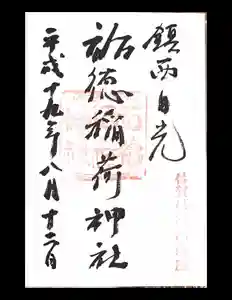 鎮西日光
祐徳稲荷神社
平成十九年八月十二日